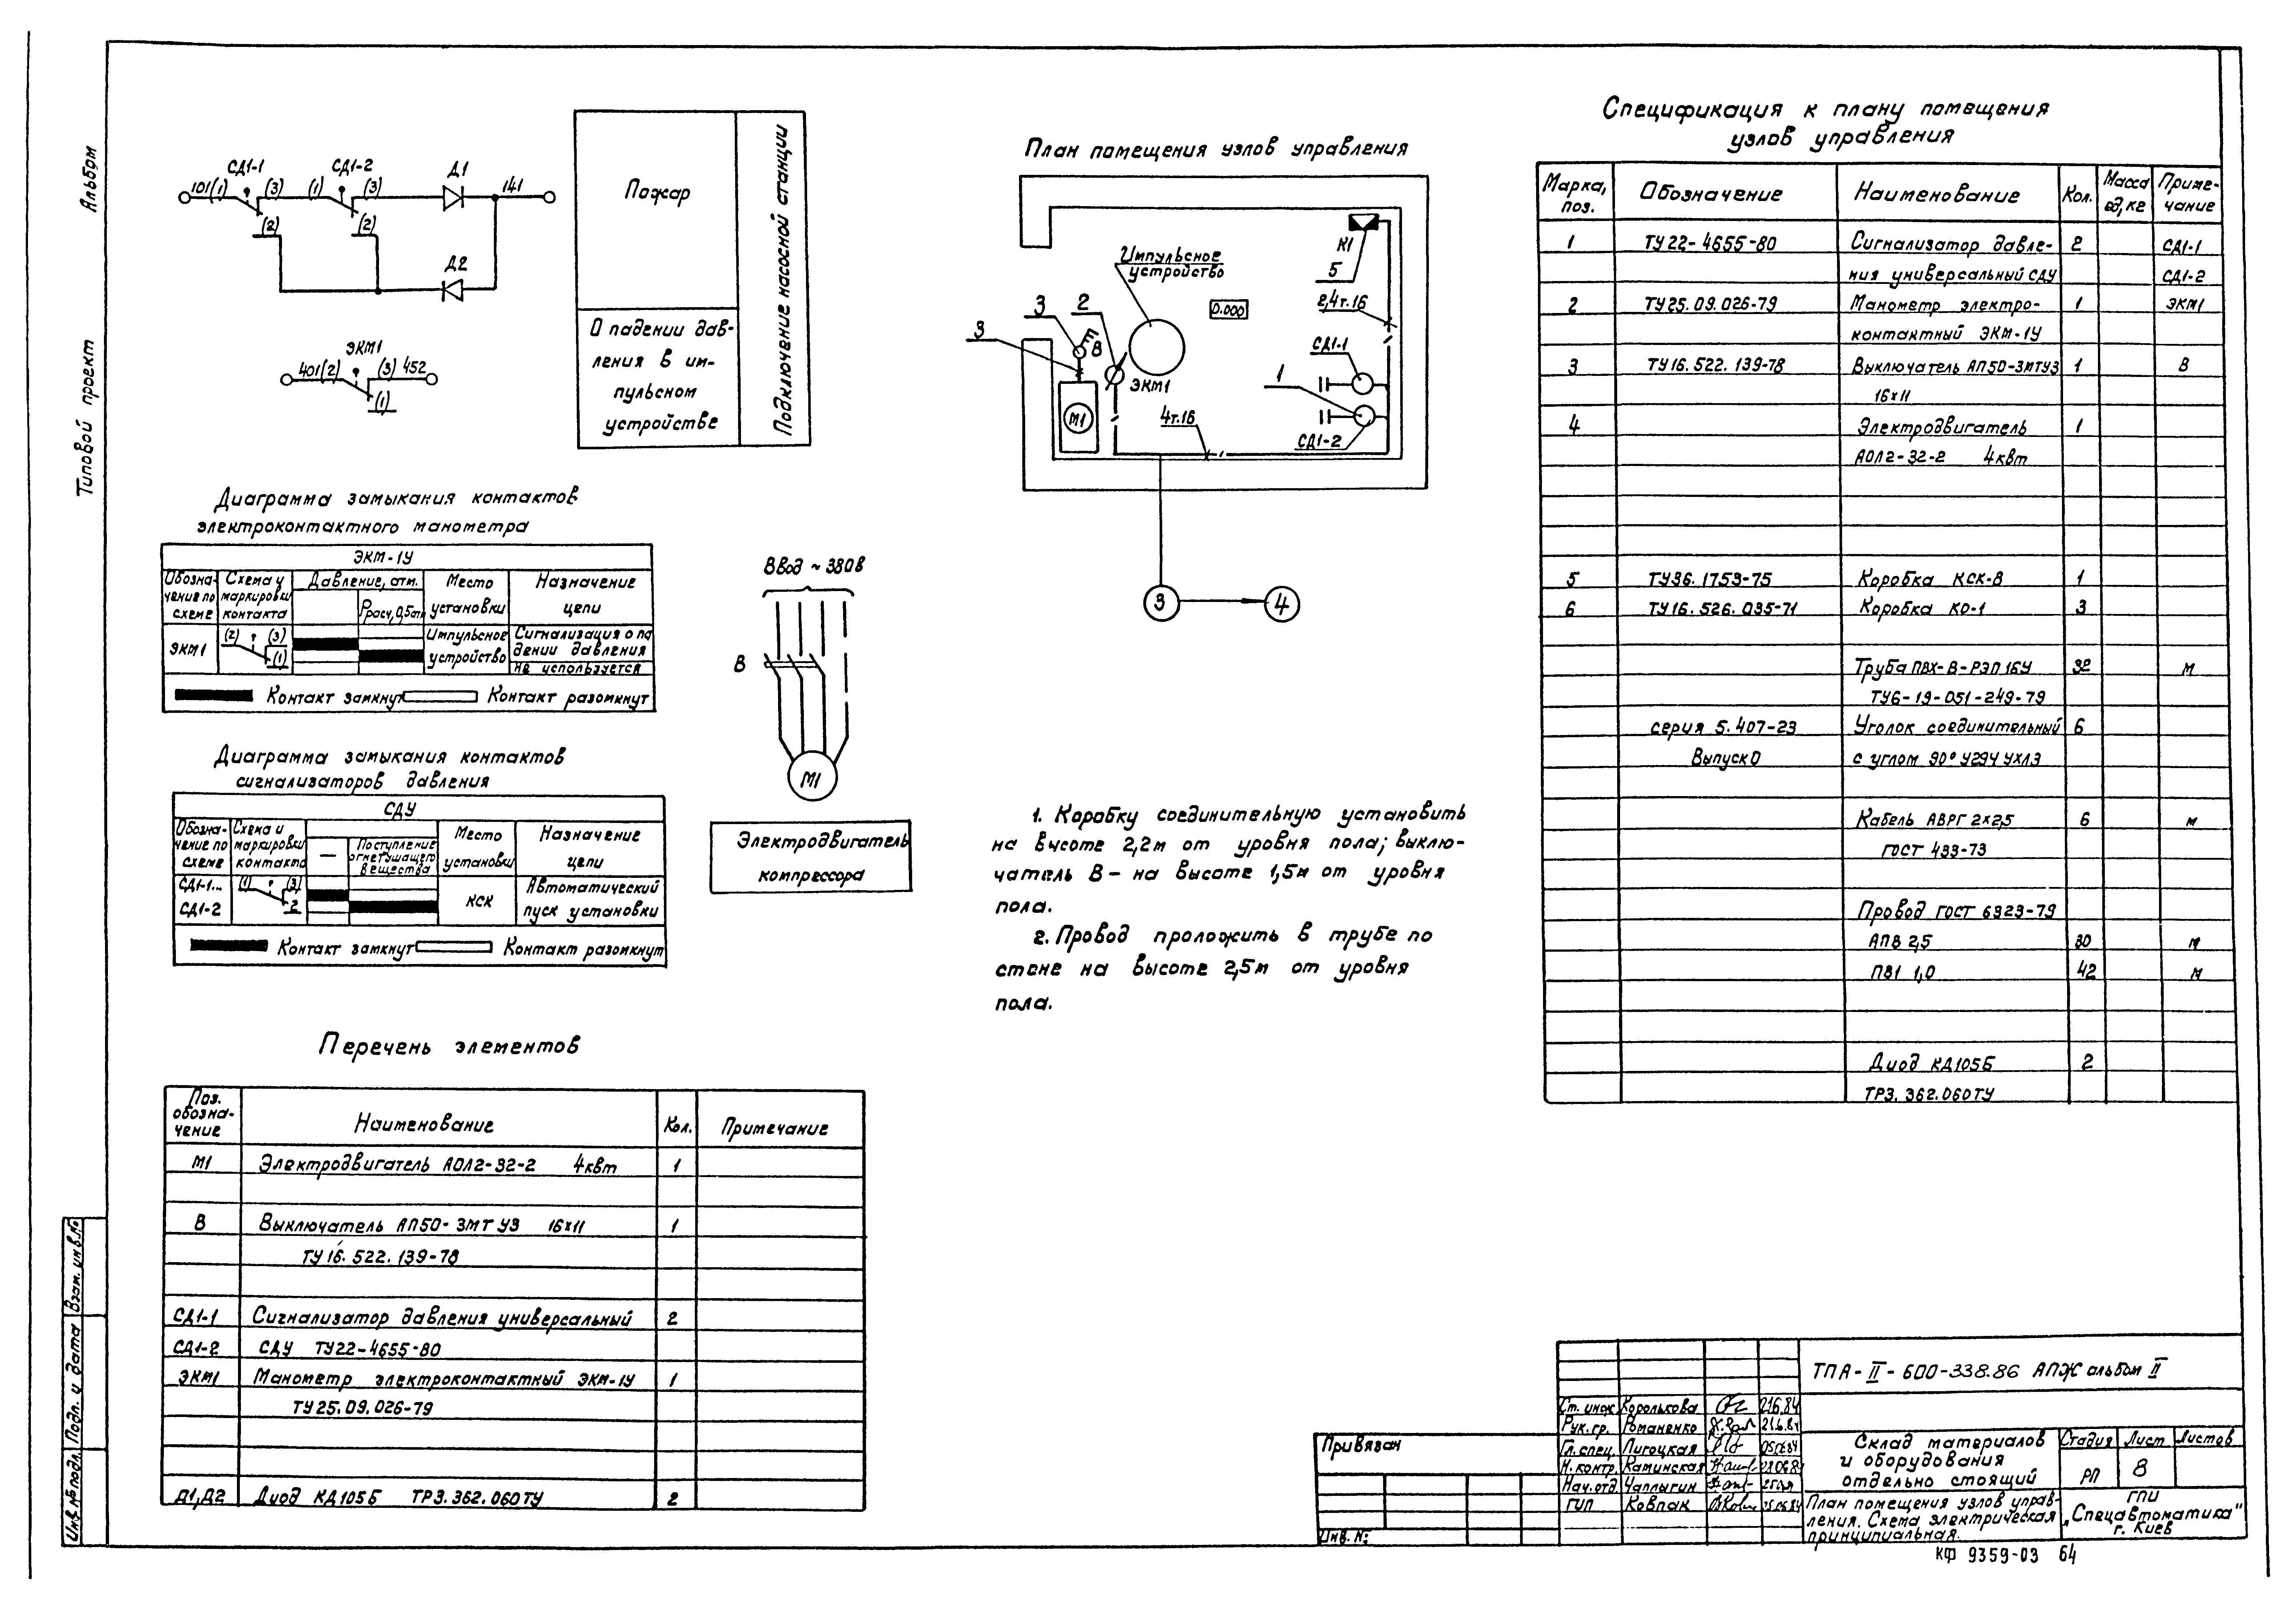 Альбом
Типовой проект
СД1-1
СД1-2
Д1
101(1)
(3)
(1)
(3)
141
(2)
(2)
Д2
ЭКМ1
401(2)
(3) 452
(1)
Пожар
О падении дав-
ления в им-
пульсном
устройстве
Подключение насосной станции
Диаграмма замыкания контактов
электроконтактного манометра
ЭКМ-1У
Обозна-
чение по
схеме
Схема и
маркировка
контакта
Давление, атм.
Ррасч, 0,5ат
Место
установки
Назначение
цепи
ЭКМ1
(2) (3)
(1)
Импульсное
устройство
Сигнализация о па
дении давления
не используется
Контакт замкнут
Контакт разомкнут
Диаграмма замыкания контактов
сигнализаторов давления
СДУ
Обозна-
чение по
схеме
Схема и
маркировка
контакта
—
Поступление
огнетушащего
вещества
Место
установки
Назначение
цепи
СД1-1...
СД1-2
(1) (3)
2
КСК
Автоматический
пуск установки
Контакт замкнут
Контакт разомкнут
Ввод ~ 380 в
В
М1
Электродвигатель
компрессора
План помещения узлов управления
Импульсное
устройство
К1
5
0.000
2,4т.16
3
3
2
В
ЭКМ1
М1
СД1-1
1
СД1-2
4т.16
3
4
1. Коробку соединительную установить
на высоте 2,2м от уровня пола; выклю-
чатель В – на высоте 1,5м от уровня
пола.
2. Провод проложить в трубе по
стене на высоте 2,5м от уровня
пола.
Спецификация к плану помещения
узлов управления
Марка,
поз.
Обозначение
Наименование
Кол.
Масса
ед, кг
Приме-
чание
1 ТУ22-4655-80 Сигнализатор давле- 2 СД1-1
ния универсальный СДУ СД1-2
2 ТУ25.09.026-79 Манометр электро- 1 ЭКМ1
контактный ЭКМ-1У
3 ТУ16.522.139-78 Выключатель АП50-3МТУ3 1 В
16х11
4 Электродвигатель 1
АОЛ2-32-2 4квт
5 ТУ36.1753-75 Коробка КСК-8 1
6 ТУ16.526.035-71 Коробка КО-1 3
Труба ПВХ-В-РЭП 16У 32 м
ТУ6-19-051-249-79
серия 5.407-23 Уголок соединительный 6
Выпуск 0 с углом 90° У294 УХЛ3
Кабель АВРГ 2х2,5 6 м
ГОСТ 433-73
Провод ГОСТ 6323-79
АПВ 2,5 30 м
ПВ1 1,0 42 м
Диод КД105Б 2
ТР3.362.060ТУ
Перечень элементов
Поз.
обозна-
чение
Наименование
Кол.
Примечание
М1 Электродвигатель АОЛ2-32-2 4квт 1
В Выключатель АП50-3МТ У3 16х11 1
ТУ16.522.139-78
СД1-1 Сигнализатор давления универсальный 2
СД1-2 СДУ ТУ22-4655-80
ЭКМ1 Манометр электроконтактный ЭКМ-1У 1
ТУ25.09.026-79
Д1,Д2 Диод КД105Б ТР3.362.060ТУ 2
Взам. инв.№
Подп. и дата
Инв.№ подл.
Привязан
Инв. №:
Ст. инж. Королькова 21.6.84
Рук. гр. Романенко 21.6.84
Гл. спец. Лигоцкая
Н. контр. Каминская
Нач. отд. Чаплыгин
ГИП Ковпак
ТПА-II-600-338.86 АПЖ альбом II
Склад материалов
и оборудования
отдельно стоящий
Стадия Лист Листов
РП 8
План помещения узлов управ-
ления. Схема электрическая
принципиальная.
ГПИ
„Спецавтоматика"
г. Киев
КФ 9359-03 64